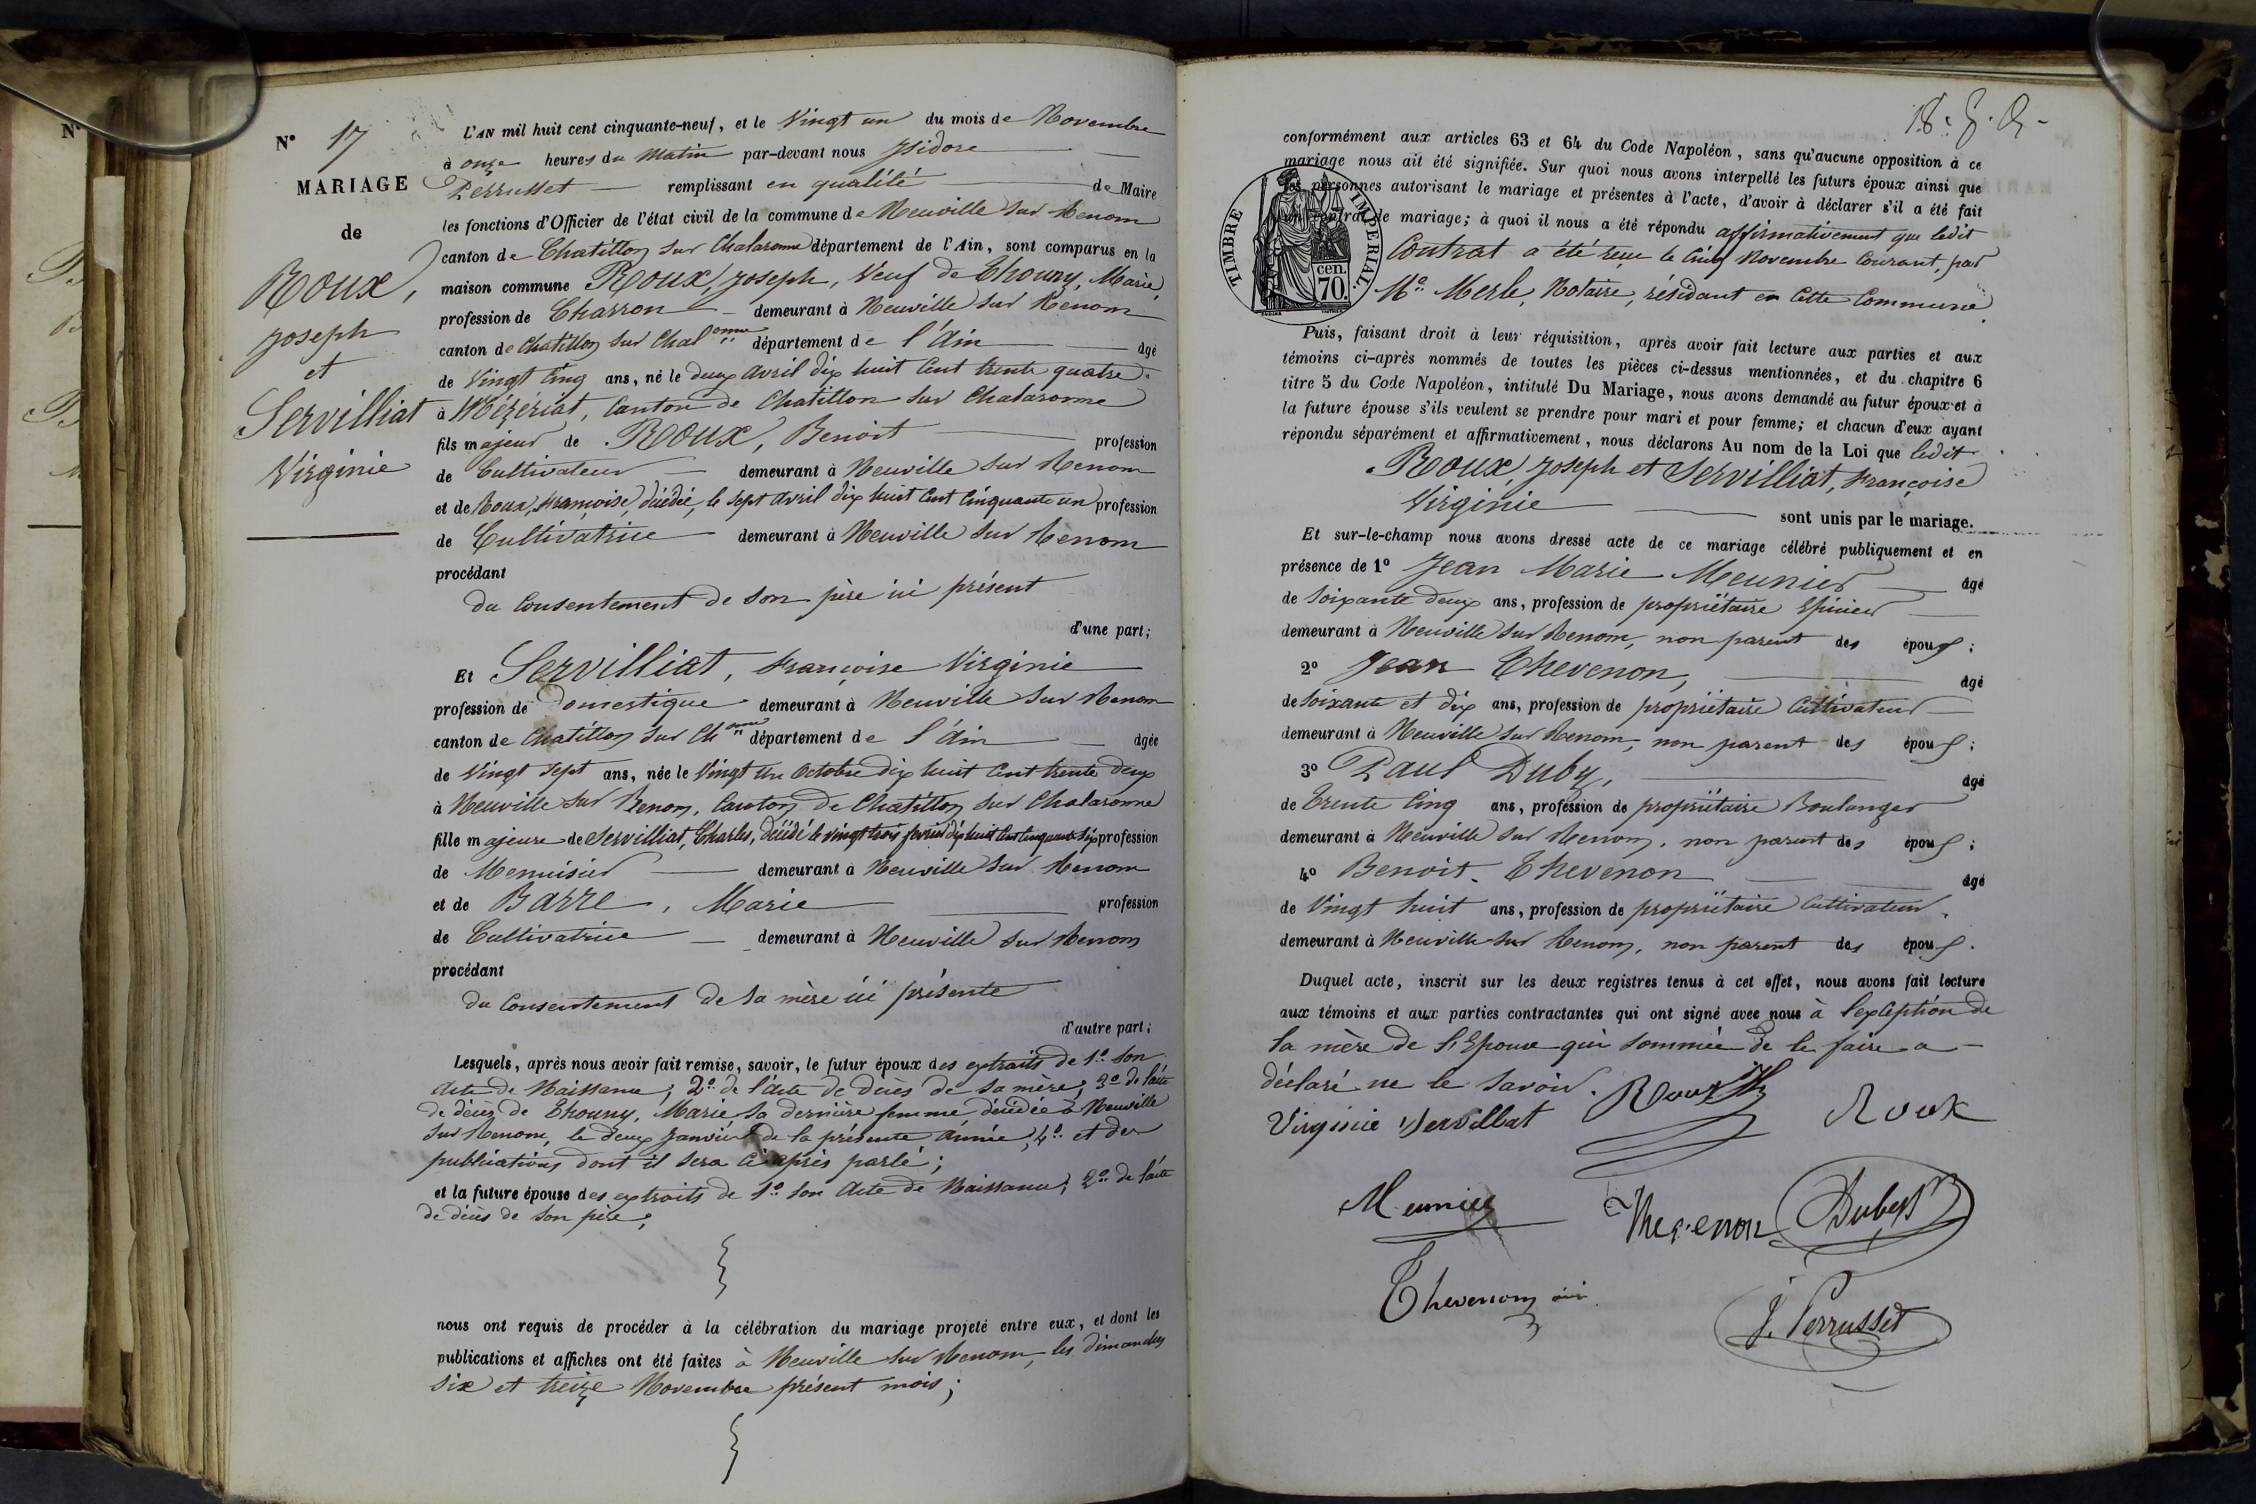 N° 17
MARIAGE
de
Roux,
Joseph
et
Servilliat
Virginie
L'AN mil huit cent cinquante-neuf, et le Vingt un du mois de Novembre
à onze heures du Matin par-devant nous Isidore
Perrusset remplissant en qualité de Maire
les fonctions d'Officier de l'état civil de la commune de Neuville sur Renom
canton de Chatillon sur Chalaronne département de l'Ain, sont comparus en la
maison commune Roux, Joseph, Veuf de Thouny, Marie,
profession de Charron demeurant à Neuville sur Renom
canton de Chatillon sur Chal.onne département de l'Ain âgé
de Vingt Cinq ans, né le deux avril dix huit Cent trente quatre
à Mézériat, Canton de Chatillon sur Chalaronne
fils majeur de Roux, Benoit profession
de Cultivateur demeurant à Neuville sur Renom
et de Roux, Françoise, décédée, le sept avril dix huit Cent Cinquante un profession
de Cultivatrice demeurant à Neuville sur Renom
procédant
du Consentement de son père ici présent
d'une part;
Et Servilliat, Françoise Virginie
profession de Domestique demeurant à Neuville sur Renom
canton de Chatillon sur Ch.onne département de l'Ain âgée
de Vingt Sept ans, née le Vingt Un Octobre dix huit Cent trente deux
à Neuville sur Renom, Canton de Chatillon sur Chalaronne
fille majeure de Servilliat, Charles, Décédé le vingt trois février dix huit Cent Cinquante Six profession
de Menuisier demeurant à Neuville sur Renom
et de Barre, Marie profession
de Cultivatrice demeurant à Neuville sur Renom
procédant
du Consentement de sa mère ici présente
d'autre part;
Lesquels, après nous avoir fait remise, savoir, le futur époux des extraits de 1° son
Acte de Naissance; 2° de l'acte de décès de sa mère; 3° de l'acte
de décès de Thouny, Marie sa dernière femme décédée à Neuville
sur Renom, le deux Janvier de la présente année; 4° et des
publications dont il sera ci après parlé;
et la future épouse des extraits de 1° son Acte de Naissance; 2° de l'acte
de décès de son père;
nous ont requis de procéder à la célébration du mariage projeté entre eux, et dont les
publications et affiches ont été faites à Neuville sur Renom, les dimanches
six et treize Novembre présent mois;
conformément aux articles 63 et 64 du Code Napoléon, sans qu'aucune opposition à ce
mariage nous ait été signifiée. Sur quoi nous avons interpellé les futurs époux ainsi que
les personnes autorisant le mariage et présentes à l'acte, d'avoir à déclarer s'il a été fait
un contrat de mariage; à quoi il nous a été répondu affirmativement que ledit
Contrat a été reçu le Cinq Novembre Courant, par
Me Merle, Notaire, résidant en Cette Commune
TIMBRE IMPERIAL.
cen.
70.
Puis, faisant droit à leur réquisition, après avoir fait lecture aux parties et aux
témoins ci-après nommés de toutes les pièces ci-dessus mentionnées, et du chapitre 6
titre 5 du Code Napoléon, intitulé Du Mariage, nous avons demandé au futur époux et à
la future épouse s'ils veulent se prendre pour mari et pour femme; et chacun d'eux ayant
répondu séparément et affirmativement, nous déclarons Au nom de la Loi que ledit
Roux, Joseph et Servilliat, Françoise
Virginie
sont unis par le mariage.
Et sur-le-champ nous avons dressé acte de ce mariage célébré publiquement et en
présence de 1° Jean Marie Meunier âgé
de Soixante deux ans, profession de propriétaire Epicier
demeurant à Neuville sur Renom, non parent des époux;
2° Jean Thevenon, âgé
de Soixante et dix ans, profession de propriétaire Cultivateur
demeurant à Neuville sur Renom, non parent des époux;
3° Paul Duby, âgé
de Trente Cinq ans, profession de propriétaire Boulanger
demeurant à Neuville sur Renom, non parent des époux;
4° Benoit Thevenon âgé
de Vingt huit ans, profession de propriétaire Cultivateur
demeurant à Neuville sur Renom, non parent des époux.
Duquel acte, inscrit sur les deux registres tenus à cet effet, nous avons fait lecture
aux témoins et aux parties contractantes qui ont signé avec nous à l'exception de
la mère de l'Epouse qui sommée de le faire a
déclaré ne le savoir.
Virginie Servillat Roux Roux
Meunier Thevenon Duby
Thevenon
J. Perrusset